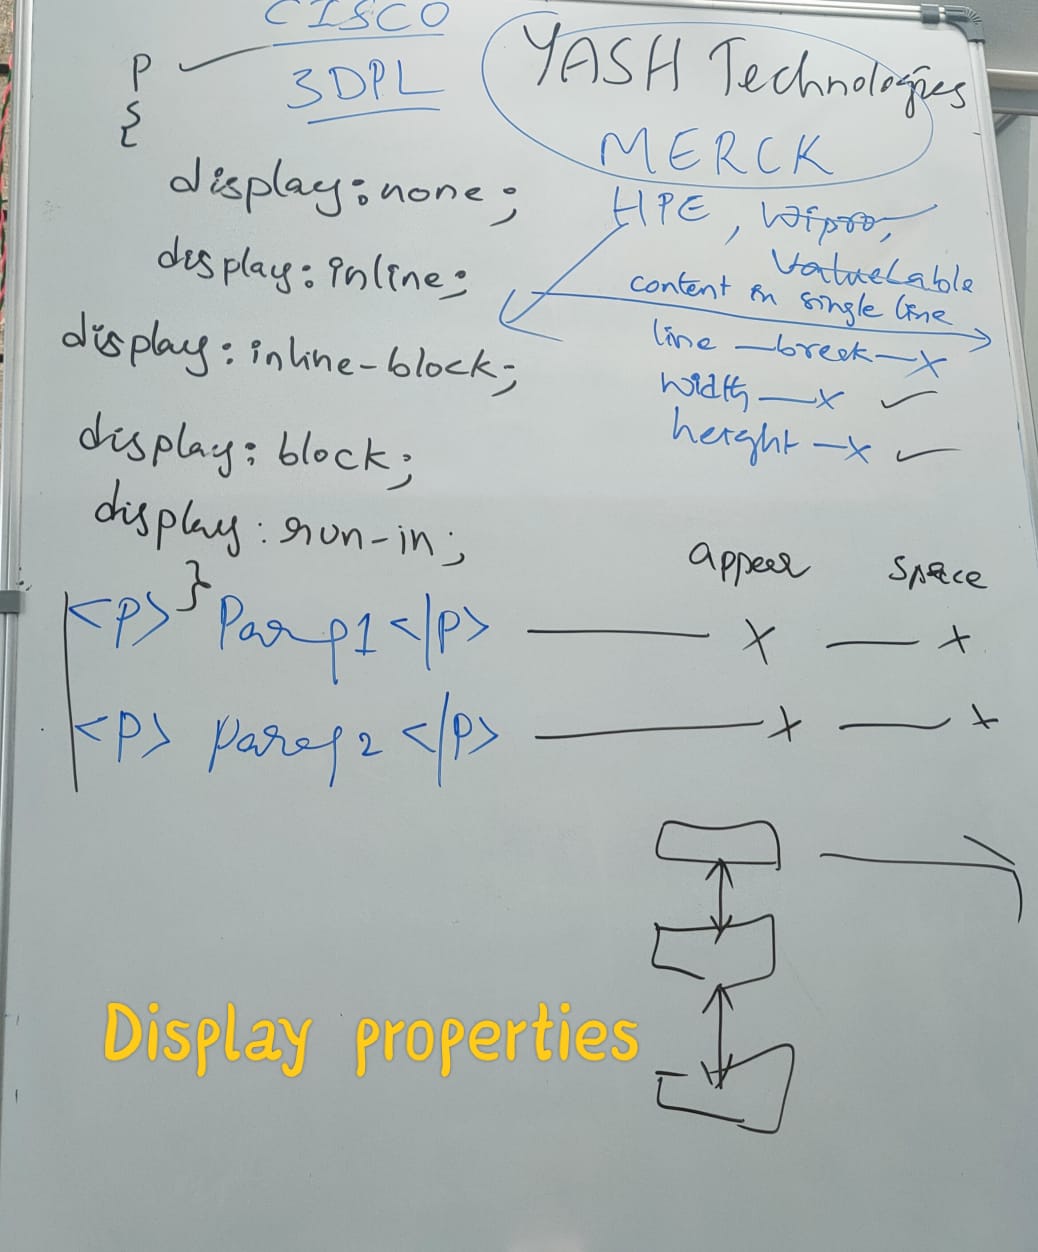 CISCO
3DPL
YASH Technologies
MERCK
HPE, Wipro,
ValueLable
p
{
display:none;
display:inline;
display:inline-block;
display:block;
display:run-in;
}
content in single line
line -break-x
width-x ✓
height-x ✓
appear space
<p> Parap1 </p> x x
<p> parap2 </p> x x
Display properties